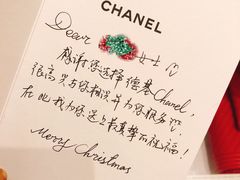 CHANEL
Dear
感谢您选择德基Chanel,
很高兴与您相识并为您服务♡!
在此我为您送上最真挚的祝福!
Merry Christmas